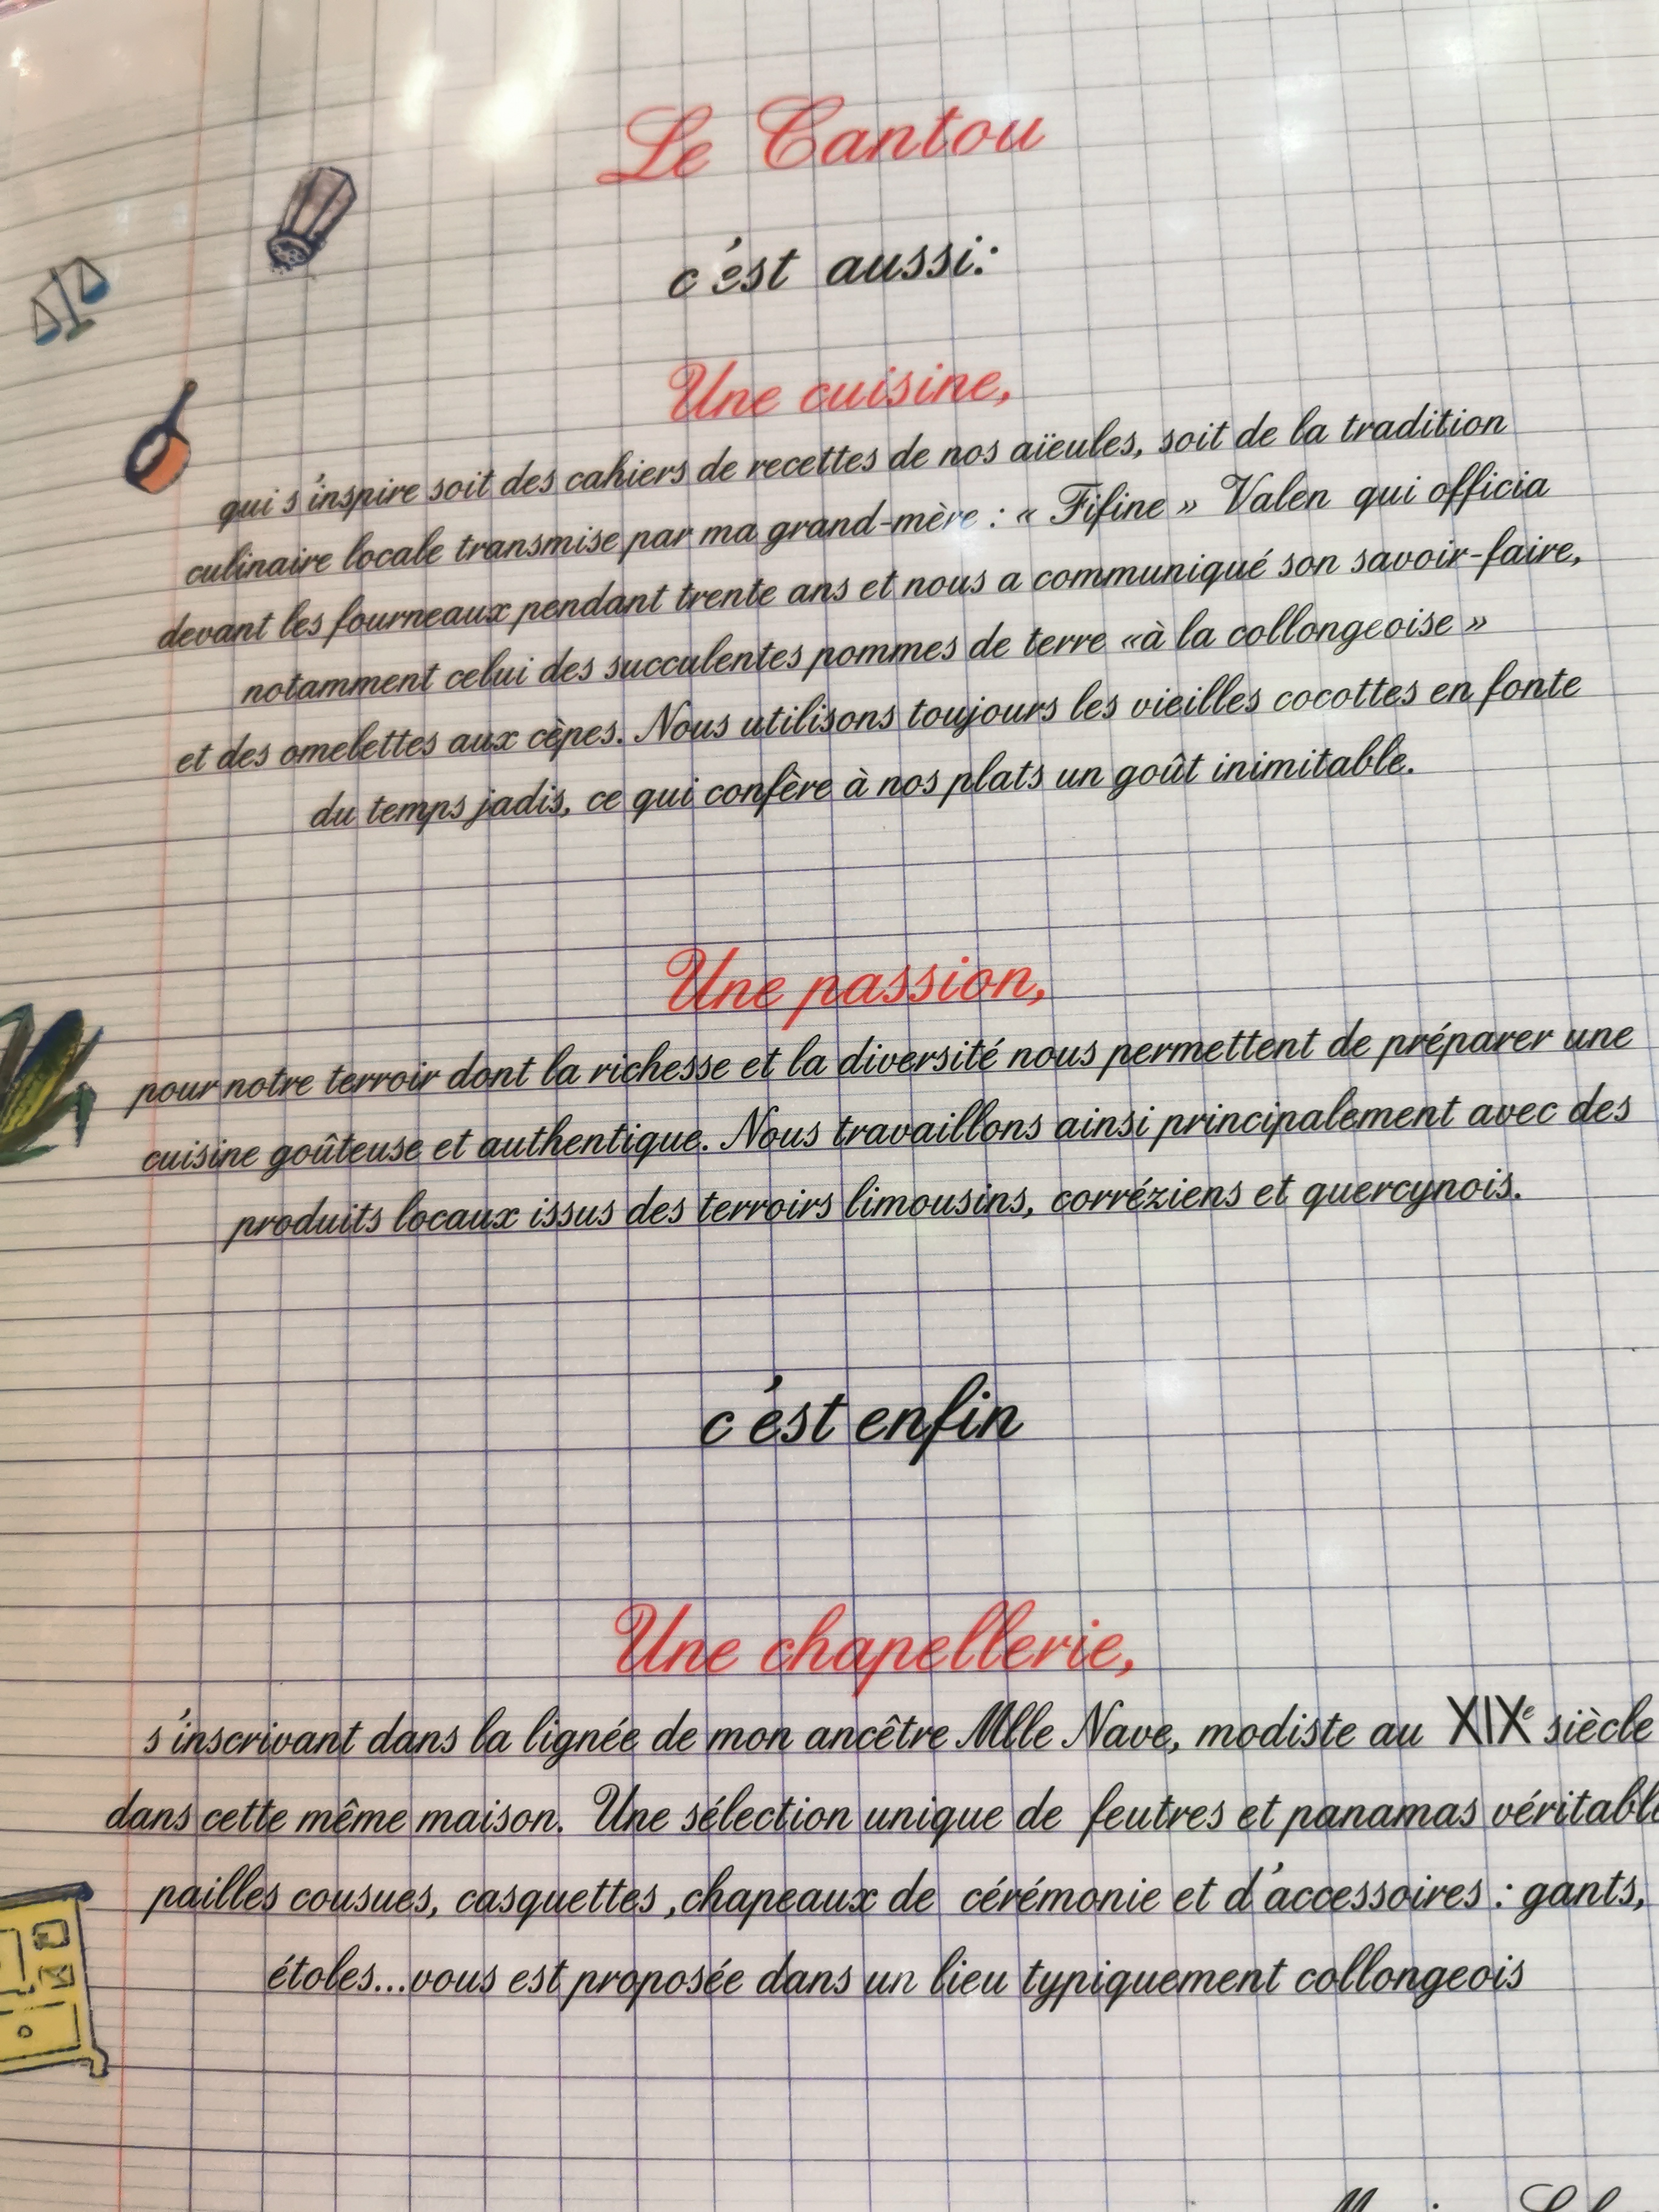 Le Cantou
c'est aussi:
Une cuisine,
qui s'inspire soit des cahiers de recettes de nos aïeules, soit de la tradition
culinaire locale transmise par ma grand-mère : « Fifine » Valen qui officia
devant les fourneaux pendant trente ans et nous a communiqué son savoir-faire,
notamment celui des succulentes pommes de terre «à la collongeoise »
et des omelettes aux cèpes. Nous utilisons toujours les vieilles cocottes en fonte
du temps jadis, ce qui confère à nos plats un goût inimitable.
Une passion,
pour notre terroir dont la richesse et la diversité nous permettent de préparer une
cuisine goûteuse et authentique. Nous travaillons ainsi principalement avec des
produits locaux issus des terroirs limousins, corréziens et quercynois.
c'est enfin
Une chapellerie,
s'inscrivant dans la lignée de mon ancêtre Mlle Nave, modiste au XIXe siècle
dans cette même maison. Une sélection unique de feutres et panamas
pailles cousues, casquettes ,chapeaux de cérémonie et d'accessoires : gants,
étoles...vous est proposée dans un lieu typiquement collongeois